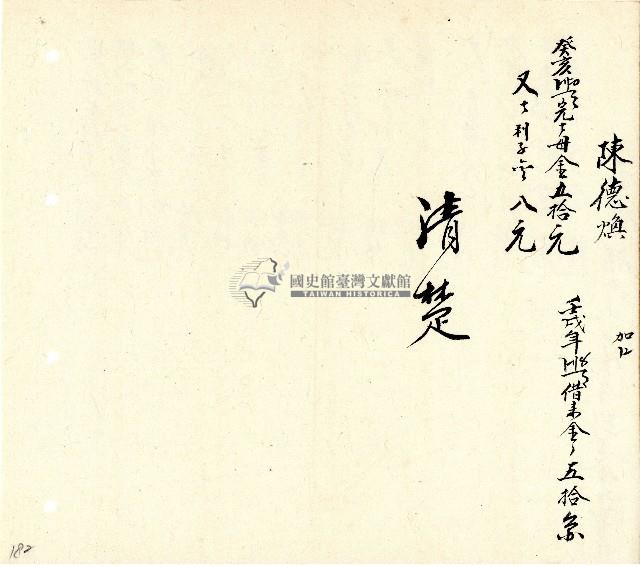 陳德煥
加12
壬戌年 借來金五拾
癸亥 完去母金五拾元
又去利子金八元
清楚
國史館臺灣文獻館
TAIWAN HISTORICA
182